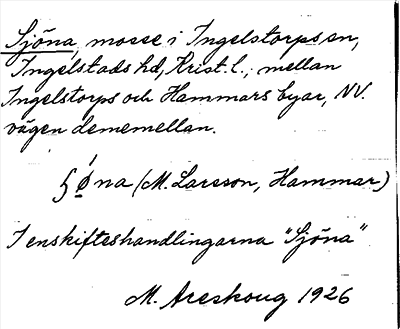 Sjöna, mosse i Ingelstorps sn,
Ingelstads hd, Krist. l.; mellan
Ingelstorps och Hammars byar, NV.
vägen dememellan.
ʃǿna (M. Larsson, Hammar)
I enskifteshandlingarna "Sjöna"
M. Areskoug 1926